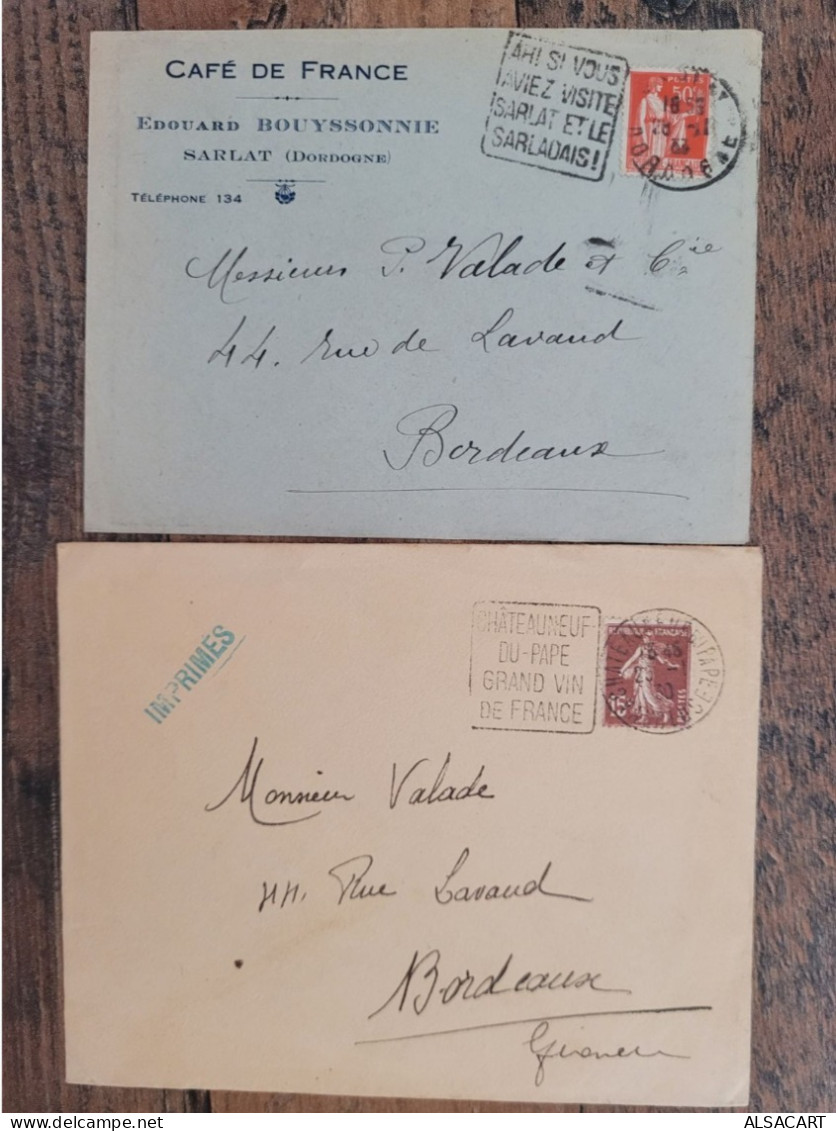 CAFÉ DE FRANCE
EDOUARD BOUYSSONNIE
SARLAT (DORDOGNE)
TÉLÉPHONE 134
AH! SI VOUS
AVIEZ VISITÉ
SARLAT ET LE
SARLADAIS!
50c
DORDOGNE
Messieurs P. Valade et Cie
44. rue de Lavaud
Bordeaux
IMPRIMÉS
CHÂTEAUNEUF-
DU-PAPE
GRAND VIN
DE FRANCE
15c
Monsieur Valade
44. Rue Lavaud
Bordeaux
Gironde
delcampe.net
ALSACART